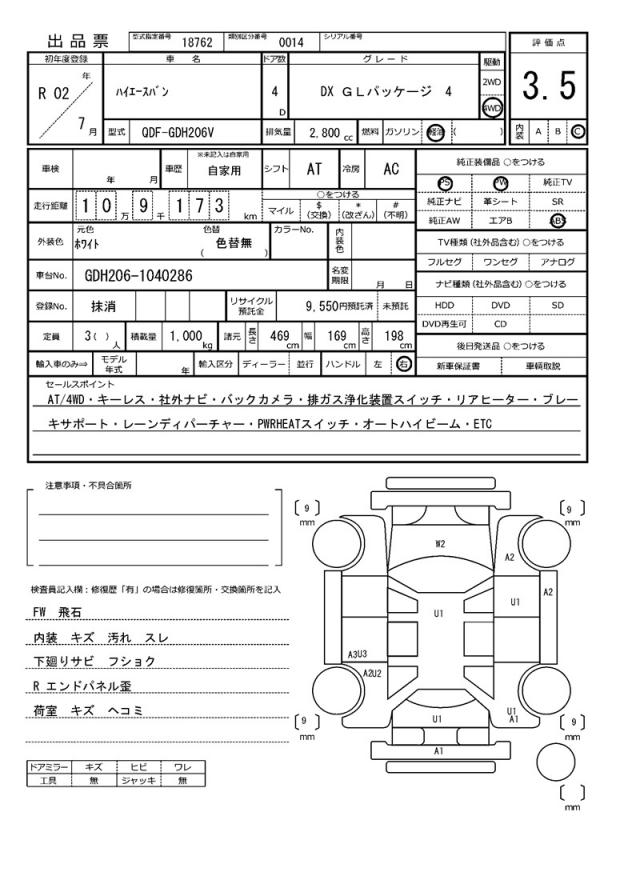 出品票 型式指定番号 18762 類別区分番号 0014 シリアル番号
評価点
3.5
内装 A B C
初年度登録 車名 ドア数 グレード 駆動
R 02 年 7 月 ハイエースバン 4 D DX GLパッケージ 4 2WD 4WD
型式 QDF-GDH206V 排気量 2,800 cc 燃料 ガソリン 軽油 ( )
車検 年 月 車歴 ※未記入は自家用 自家用 シフト AT 冷房 AC
走行距離 1 0 万 9 千 1 7 3 km ○をつける マイル $ (交換) * (改ざん) # (不明)
外装色 元色 ホワイト 色替 色替無 ( ) カラーNo. 内装色
車台No. GDH206-1040286 名変期限 月 日
登録No. 抹消 リサイクル預託金 9,550円預託済 未預託
定員 3( ) 人 積載量 1,000 kg 諸元 長さ 469 cm 幅 169 cm 高さ 198 cm
輸入車のみ⇒ モデル年式 年 輸入区分 ディーラー 並行 ハンドル 左 右
純正装備品 ○をつける
PS PW 純正TV
純正ナビ 革シート SR
純正AW エアB ABS
TV種類 (社外品含む) ○をつける
フルセグ ワンセグ アナログ
ナビ種類 (社外品含む) ○をつける
HDD DVD SD
DVD再生可 CD
後日発送品 ○をつける
新車保証書 車輌取説
セールスポイント
AT/4WD・キーレス・社外ナビ・バックカメラ・排ガス浄化装置スイッチ・リアヒーター・ブレー
キサポート・レーンディパーチャー・PWRHEATスイッチ・オートハイビーム・ETC
注意事項・不具合箇所
検査員記入欄：修復歴「有」の場合は修復箇所・交換箇所を記入
FW 飛石
内装 キズ 汚れ スレ
下廻りサビ フショク
R エンドパネル歪
荷室 キズ ヘコミ
ドアミラー キズ ヒビ ワレ
工具 無 ジャッキ 無
[ 9 ] mm [ 9 ] mm
W2
A2
U1 U1 A2
A3U3
A2U2
[ 9 ] mm U1 U1 A1 [ 9 ] mm
A1
[ ] mm